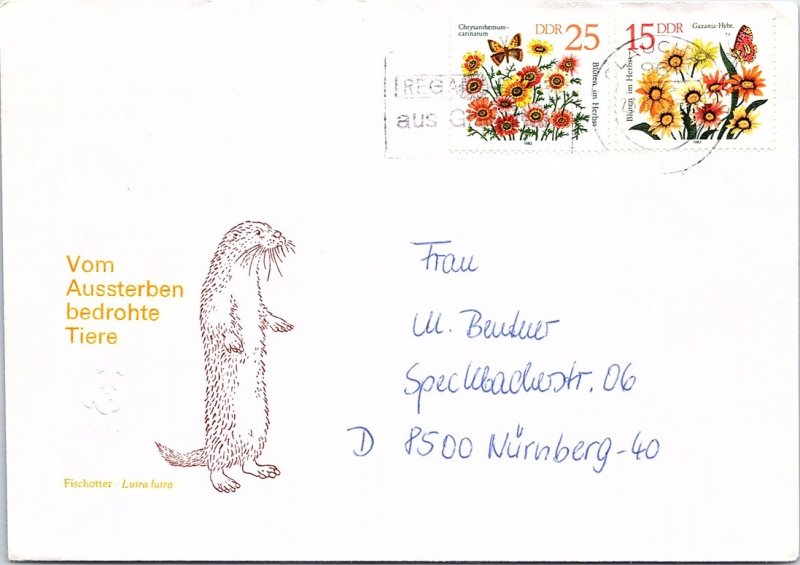 Chrysanthemum-
carinatum
DDR 25
Blüten im Herbst
1982
15 DDR
Gazania-Hybr.
Blüten im Herbst
1982
aus
Vom
Aussterben
bedrohte
Tiere
Fischotter - Lutra lutra
Frau
M. Beutner
Speckbacherstr. 06
D 8500 Nürnberg-40